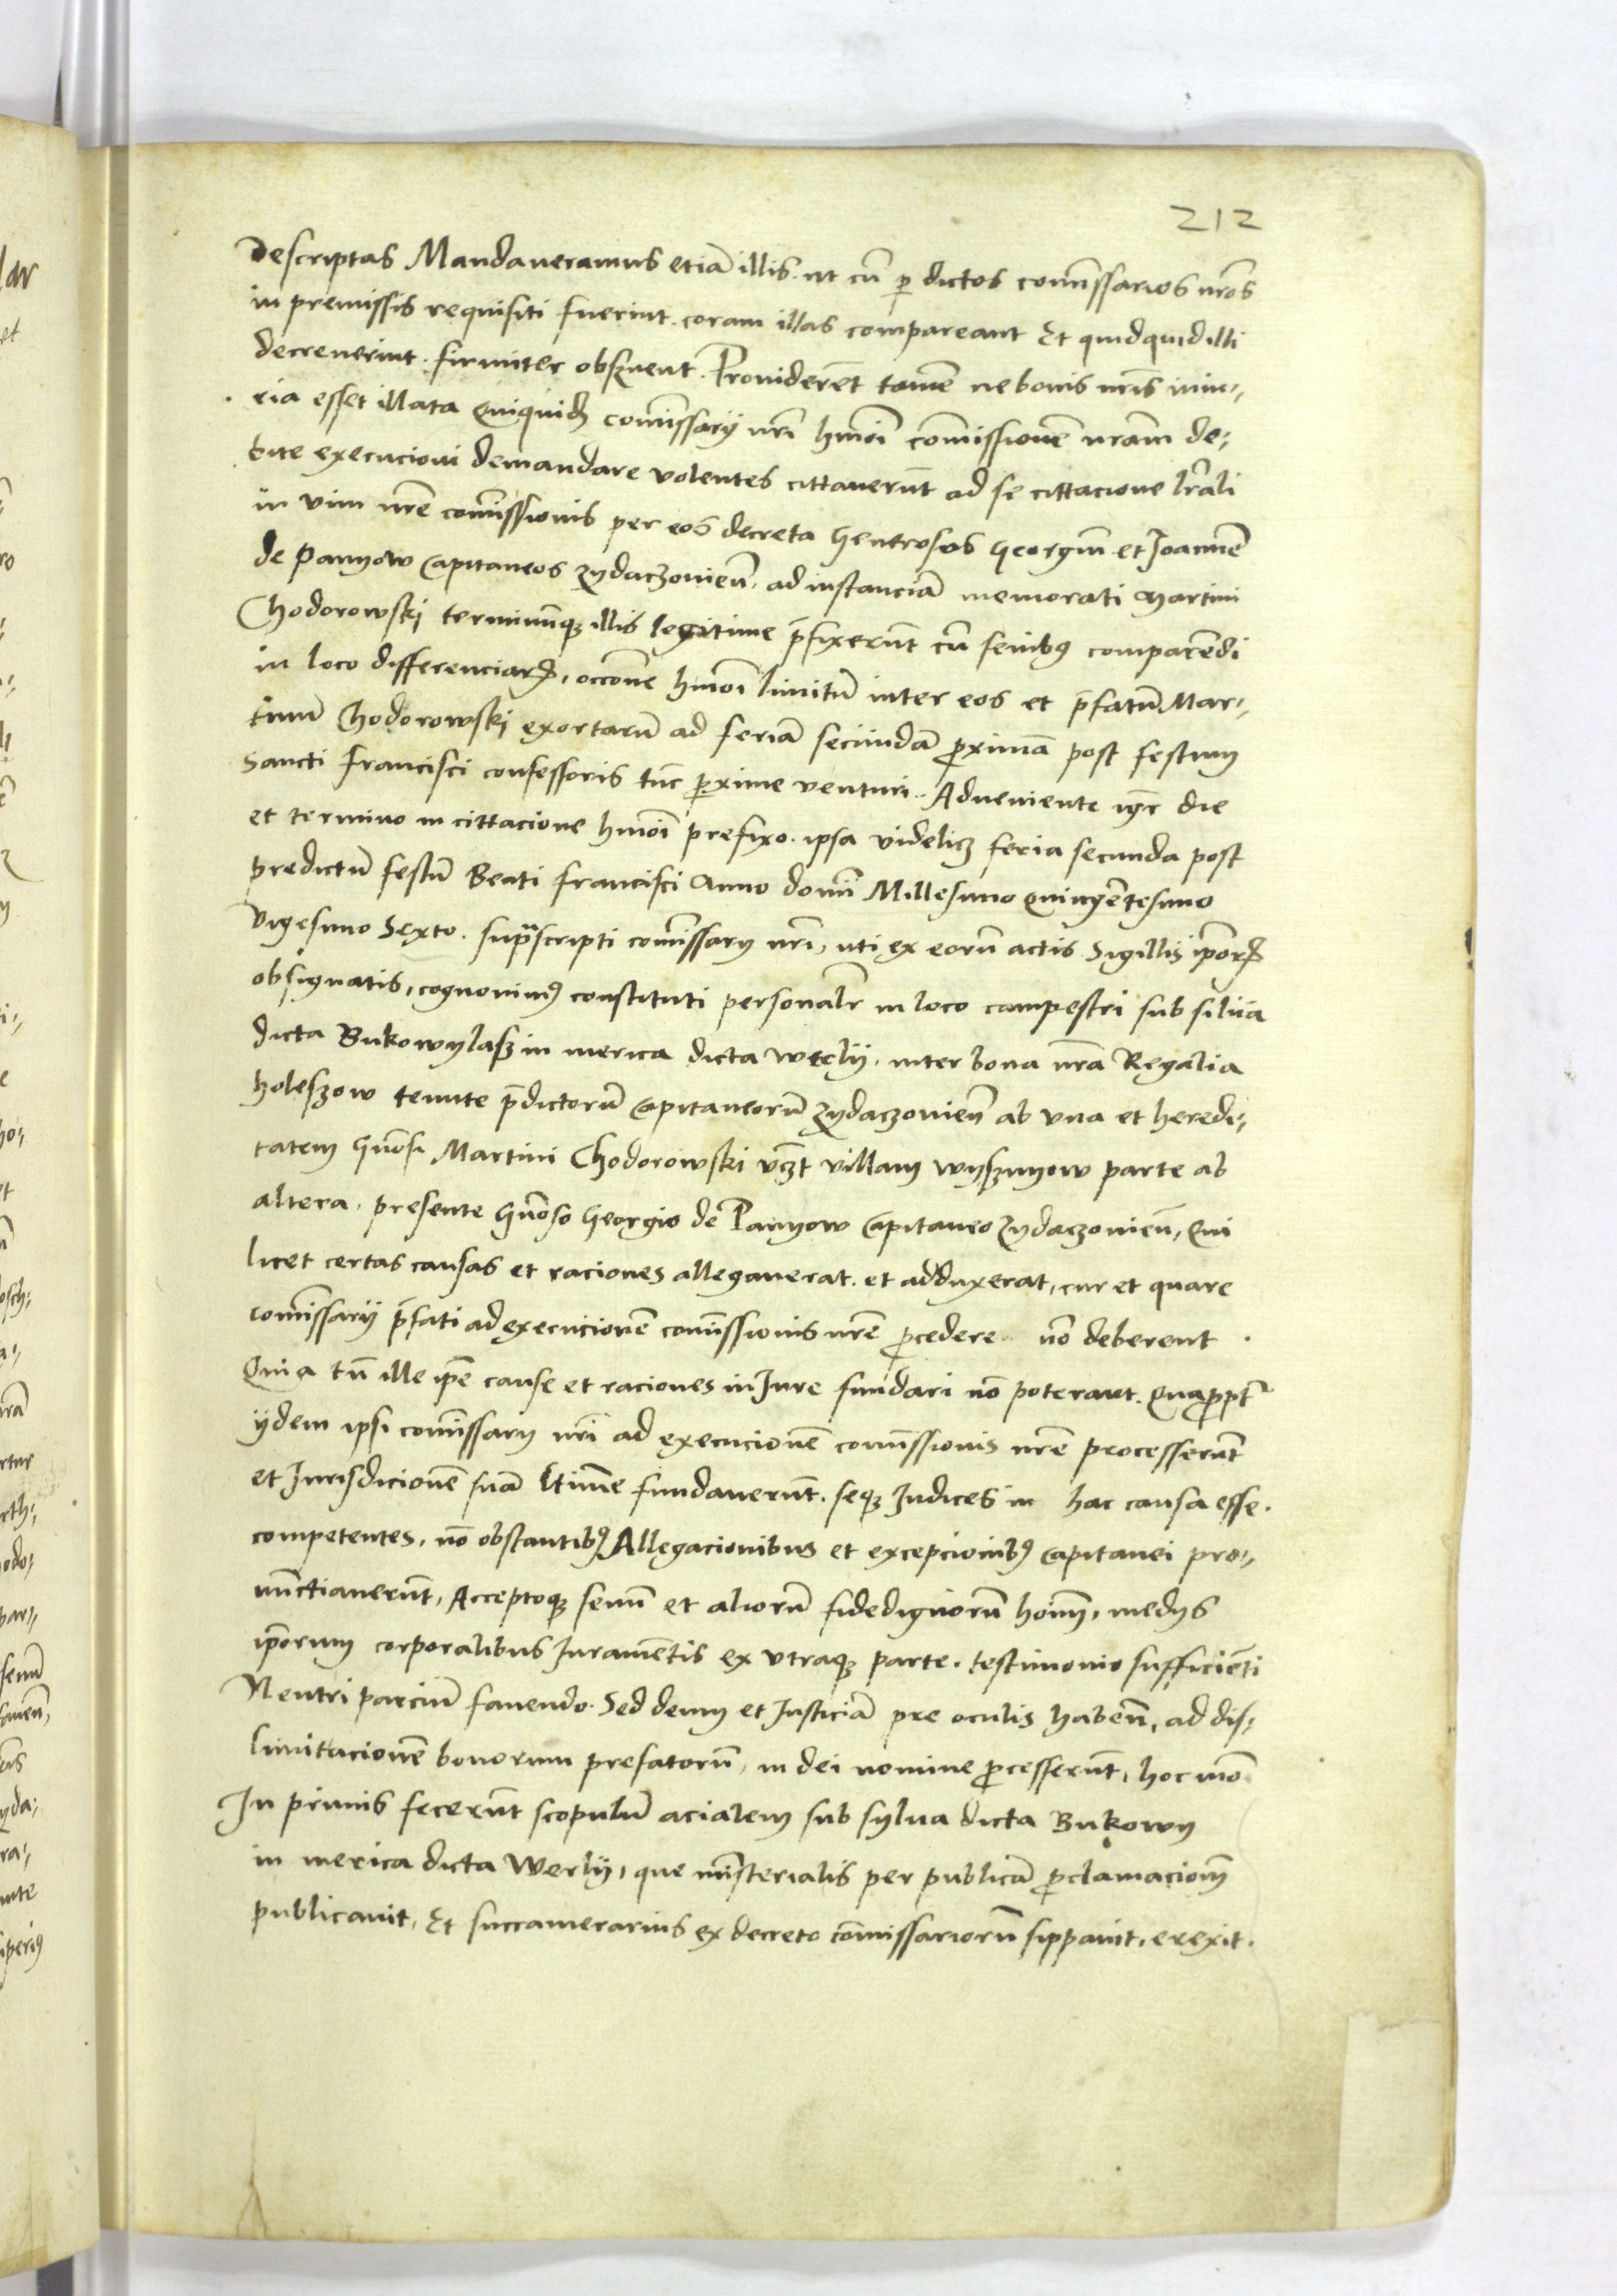 212
Descriptas Mandaveramus etiā illis. ut cū p dictos comīssarios nr̄os
in premissis requisiti fuerint. coram illas compareant Et quidquid illi
decreverint. firmiter obsƶvent. Providerēt tamē ne bonis nr̄is iniu-
ria esset illata Quiquidƶ comīssarij nrī hmōi comissionē nram̄ de-
bite execucioni demandare volentes cittaverūt ad se cittacione lr̄ali
in vim nrē comīssionis per eos decreta Generosos Georgiū et Joannē
de Pamyow Capitaneos Zydaczovieñ. ad instanciā memorati Martini
Chodorowskj terminūqƶ illis legitime p̄fixerūt cū senibꝰ comparēdi
in loco differenciarꝝ, occōne hmōi limitū inter eos et p̄fatū Mar-
tinū Chodorowski exortarū ad feriā secundā proximā post festum
Sancti Francisci confessoris tūc proxime venturi. Adveniente igr̄ die
et termino in cittacione hmōi prefixo. ipsa videlicƶ feria secunda post
predictū festū Beati Francisci Anno domī Millesimo Quingētesimo
vigesimo Sexto. supᵃscripti comīssarij nrī, uti ex eorū actis Sigillis ip̄orꝝ
obsignatis, cognovimꝰ constituti personalr̄ in loco campestri sub silva
dicta Bukowylasz in merica dicta Werlij, inter bona nrā Regalia
holeszow tenute p̄dictorū Capitaneorū Zydaczovieñ ab una et heredi-
tatem Gnōsi Martini Chodorowski vcƶt villam wyszmyow parte ab
altera. presente Gnōso Georgio de Pamyow Capitaneo Zydaczovieñ, Qui
licet certas causas et raciones allegaverat. et adduxerat, cur et quare
comīssarij p̄fati ad execucionē comīssionis nrē procedere nō deberent.
Quia tn̄ ille ip̄e cause et raciones in Jure fundari nō poterant. Quaproptr̄
ijdem ipsi comīssarij nrī ad execucionē comīssionis nrē processerūt
et Jurisdicionē suā ltimē fundaverūt. seqƶ Judices in hac causa esse.
competentes, nō obstantibꝰ Allegacionibus et excepcionibꝰ Capitanei pro-
nūctiaverūt, Acceptoqƶ senū et aliorū fidedignorū hoim̄, medys
ip̄orum corporalibus Juramētis ex utraqƶ parte. testimonio sufficiēti
Neutri parciū favendo. Sed deum et Justiciā pre oculis habeñ, ad dis-
limitacionē bonorum prefatorū, in dei nomine processerūt, hoc mō
In primis fecerūt scopulū acialem sub sylva dicta Bukowy
in merica dicta Werlij, que mīsterialis per publicā proclamacionē
publicavit, Et succamerarius ex decreto comissariorū sippavit, erexit.